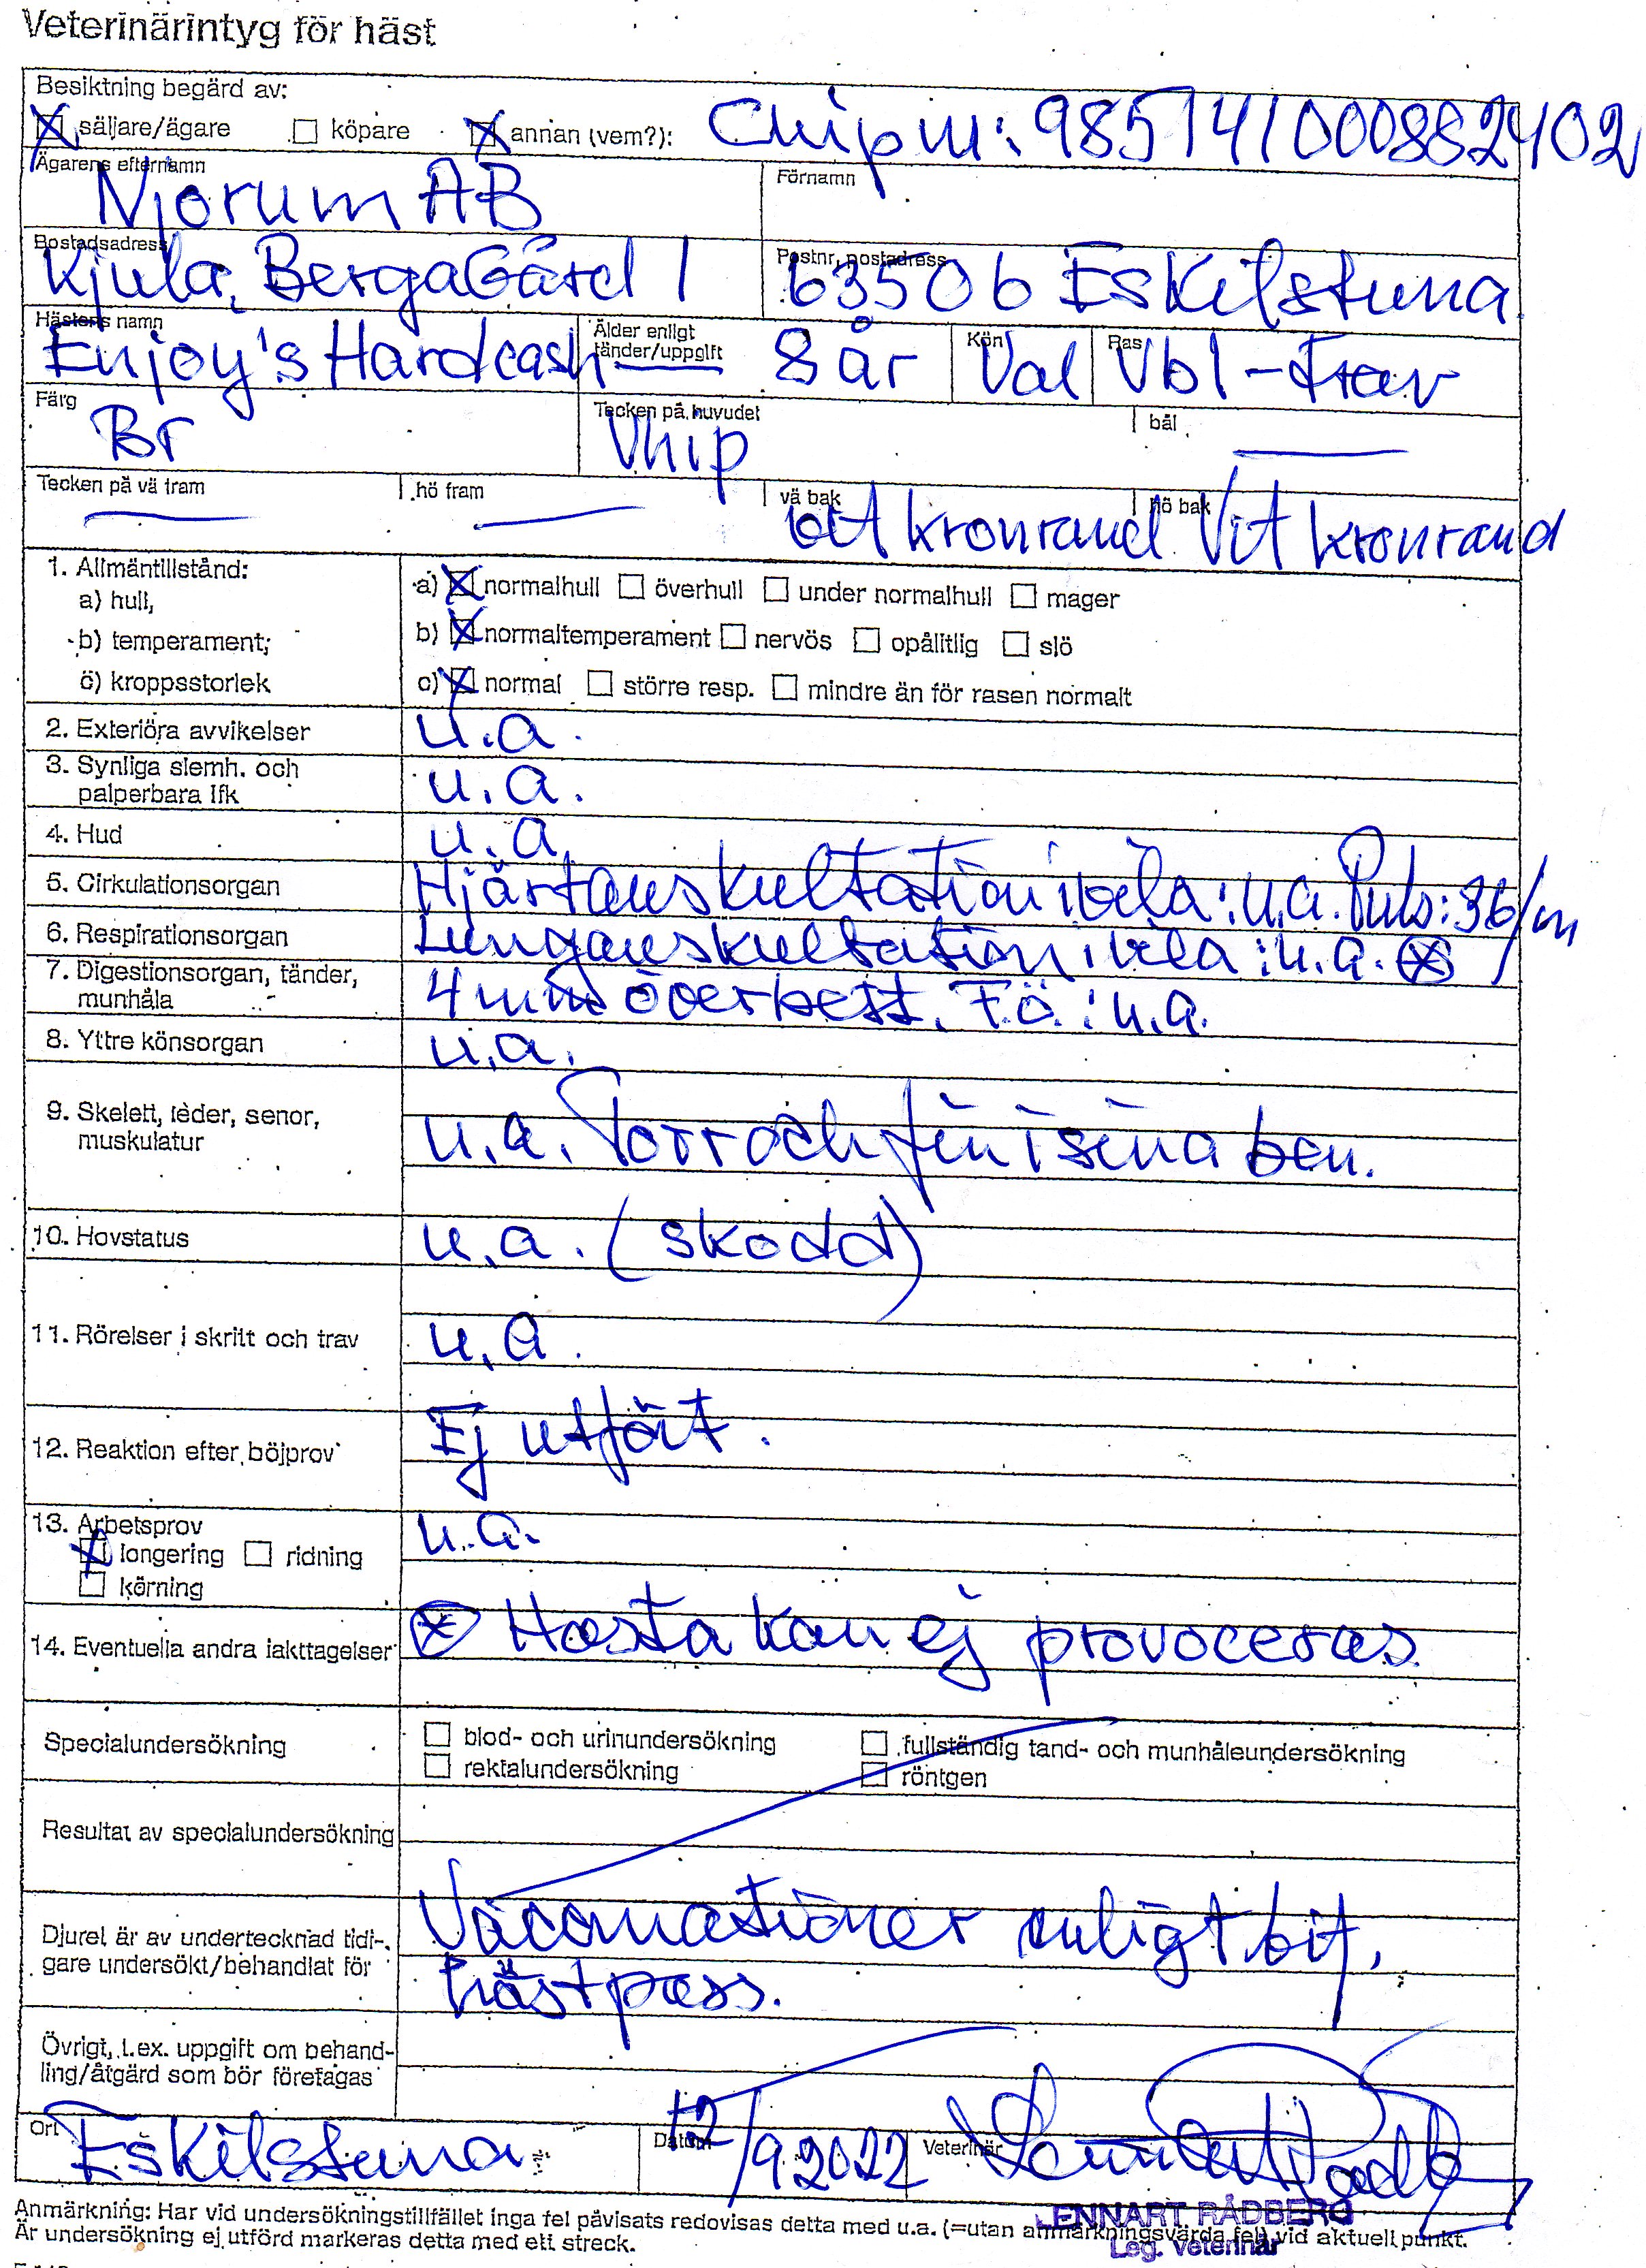 Veterinärintyg för häst
Besiktning begärd av:
säljare/ägare köpare annan (vem?): Chipnr: 985141000882402
Ägarens efternamn Förnamn
Njorum AB
Bostadsadress Postnr, postadress
Kjula, Berga Gård 1 63506 Eskilstuna
Hästens namn Ålder enligt tänder/uppgift Kön Ras
Enjoy's Hardcash 8 år Val Vbl-trav
Färg Tecken på huvudet bål
Br Vnip
Tecken på vä fram hö fram vä bak hö bak
vit kronrand Vit kronrand
1. Allmäntillstånd:
a) hull, a) normalhull överhull under normalhull mager
b) temperament; b) normaltemperament nervös opålitlig slö
c) kroppsstorlek c) normal större resp. mindre än för rasen normalt
2. Exteriöra avvikelser u.a.
3. Synliga slemh. och
palperbara lfk u.a.
4. Hud u.a.
5. Cirkulationsorgan Hjärtauskultation i vila: u.a. Puls: 36/m
6. Respirationsorgan Lungauskultation i vila: u.a. ⊗
7. Digestionsorgan, tänder,
munhåla 4 mm överbett. F.ö.: u.a.
8. Yttre könsorgan u.a.
9. Skelett, leder, senor,
muskulatur u.a. Torr och fin i sina ben.
10. Hovstatus u.a. (skodd)
11. Rörelser i skritt och trav u.a.
12. Reaktion efter böjprov Ej utfört.
13. Arbetsprov u.a.
longering ridning
körning
14. Eventuella andra iakttagelser ⊗ Hosta kan ej provoceras.
Specialundersökning blod- och urinundersökning fullständig tand- och munhåleundersökning
rektalundersökning röntgen
Resultat av specialundersökning
Djuret är av undertecknad tidi- Vaccinationer enligt bif.
gare undersökt/behandlat för hästpass.
Övrigt, t.ex. uppgift om behand-
ling/åtgärd som bör företagas
Ort Datum Veterinär
Eskilstuna 12/9 2022 Lennart Rådberg
LENNART RÅDBERG
Leg. veterinär
Anmärkning: Har vid undersökningstillfället inga fel påvisats redovisas detta med u.a. (=utan anmärkningsvärda fel) vid aktuell punkt.
Är undersökning ej utförd markeras detta med ett streck.